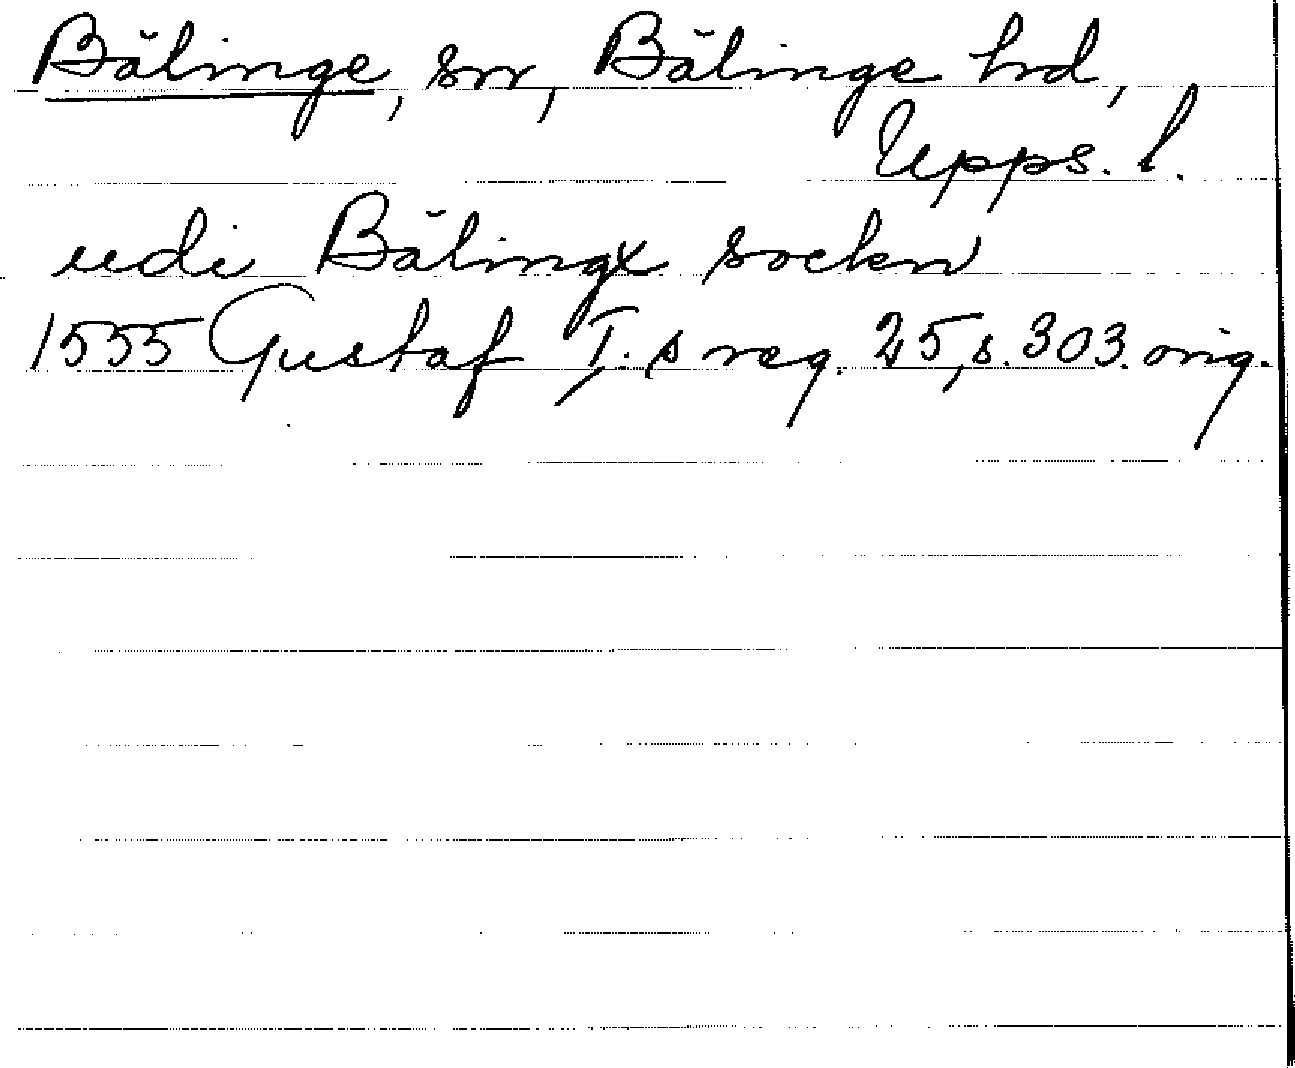 Bälinge, sn, Bälinge hd,
Upps. l.
udi Bälingx sockn
1555 Gustaf I:s reg. 25, s. 303. orig.